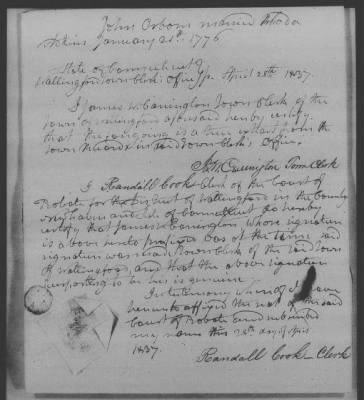 John Osborn married Rhoda
Atkins January 25th 1776
State of Connecticut
Wallingford Town Clerk's Office April 28th 1837
I James W. Carrington Town Clerk of the
Town of Wallingford aforesaid hereby certify
that the foregoing is a true extract from the
Town Records in said Town Clerk's Office.
Jas W. Carrington Town Clerk
I Randall Cook Clerk of the court of
Probate for the district of Wallingford in the County
of New haven and State of Connecticut do hereby
certify that James W. Carrington whose signature
is above was at the time said
signature was made Town Clerk of the said town
of Wallingford, and that the above signature
purporting to be his is genuine
In testimony whereof I have
hereunto affixed the seal of the said
Court of Probate and subscribed
my name this 28th day of April
1837.
Randall Cook Clerk